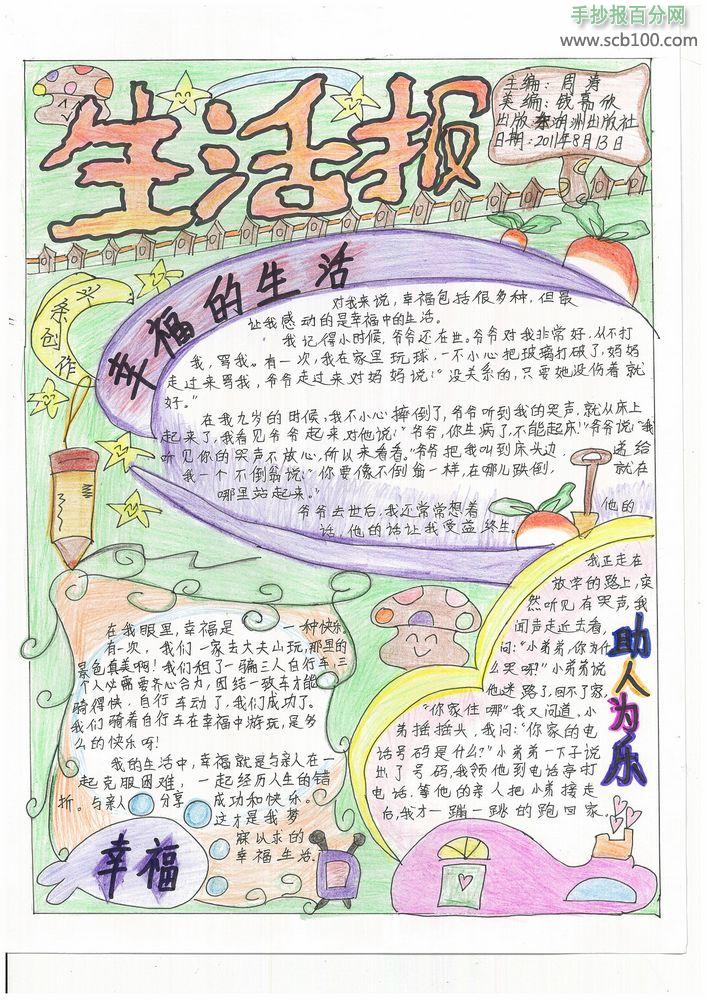 手抄报百分网
www.scb100.com
生活报
主编：周涛
美编：钱嘉欣
出版：东润洲出版社
日期：2011年8月13日
幸福的生活
亲创作
对我来说，幸福包括很多种，但最
让我感动的是幸福中的生活。
我记得小时候，爷爷还在世。爷爷对我非常好，从不打
我，骂我。有一次，我在家里玩球，一不小心把玻璃打破了，妈妈
走过来骂我，爷爷走过来对妈妈说：“没关系的，只要她没伤着就
好。”
在我九岁的时候，我不小心摔倒了，爷爷听到我的哭声，就从床上
起来了，我看见爷爷起来对他说：“爷爷，你生病了，不能起床！”爷爷说：“我
听见你的哭声不放心，所以来看看。”爷爷把我叫到床头边，送给
我一个不倒翁说：“你要像不倒翁一样，在哪儿跌倒，就在
哪里站起来。”
爷爷去世后，我还常常想着他的
话，他的话让我受益终生。
在我眼里，幸福是一种快乐。
有一次，我们一家去大夫山玩，那里的
景色真美啊！我们租了一骑三人自行车，三
个人必需要齐心合力，团结一致车才能
骑得快，自行车动了，我们成功了。
我们骑着自行车在幸福中游玩，是多
么的快乐呀！
我的生活中，幸福就是与亲人在一
起克服困难，一起经历人生的错
折。与亲人分享成功和快乐。
这才是我梦
寐以求的
幸福生活。
幸福
助人为乐
我正走在
放学的路上，突
然听见有哭声，我
闻声走近去看，
问：“小弟弟，你为什
么哭呀？”小弟弟说
他迷路了，回不了家，
“你家住哪”我又问道。小
弟摇摇头，我问：“你家的电
话号码是什么？”小弟弟一下子说
出了号码，我领他到电话亭打
电话，等他的亲人把小弟接走
后，我才一蹦一跳的跑回家。